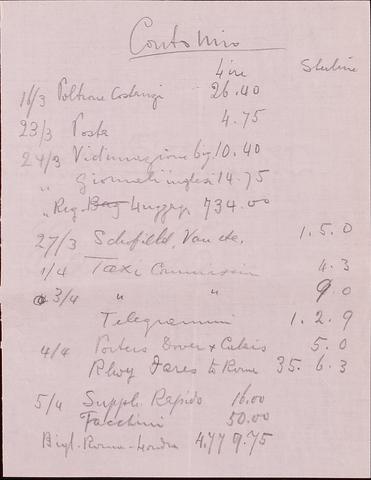 Conto Mio
Lire Sterline
16/3 Poltrone Costanzi 26.40
23/3 Posta 4.75
24/3 Vidimazione big. 10.40
" Giornali inglesi 14.75
" Reg. Bag Luggage 734.00
27/3 Schofield, Van etc. 1.5.0
1/4 Taxi Commissin 4.3
3/4 " " 9.0
Telegrammi 1.2.9
4/4 Porters Dover & Calais 5.0
Rlwy Fares to Rome 35.6.3
5/4 Suppl. Rapido 16.00
Facchini 50.00
Bigl. Roma-Londra 4.779.75